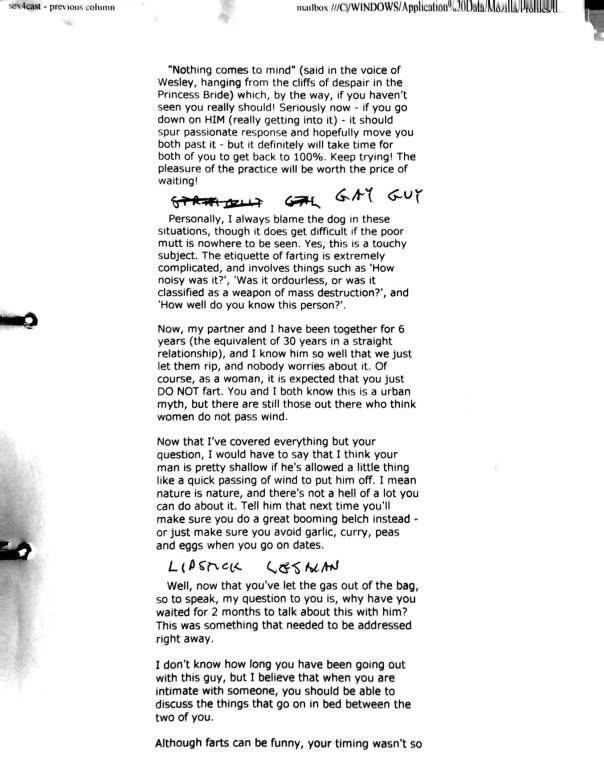 sex4cast - previous column
mailbox:///C|/WINDOWS/Application%20Data/Mozilla/Profiles/...
"Nothing comes to mind" (said in the voice of
Wesley, hanging from the cliffs of despair in the
Princess Bride) which, by the way, if you haven't
seen you really should! Seriously now - if you go
down on HIM (really getting into it) - it should
spur passionate response and hopefully move you
both past it - but it definitely will take time for
both of you to get back to 100%. Keep trying! The
pleasure of the practice will be worth the price of
waiting!
GAY GUY
Personally, I always blame the dog in these
situations, though it does get difficult if the poor
mutt is nowhere to be seen. Yes, this is a touchy
subject. The etiquette of farting is extremely
complicated, and involves things such as 'How
noisy was it?', 'Was it ordourless, or was it
classified as a weapon of mass destruction?', and
'How well do you know this person?'.
Now, my partner and I have been together for 6
years (the equivalent of 30 years in a straight
relationship), and I know him so well that we just
let them rip, and nobody worries about it. Of
course, as a woman, it is expected that you just
DO NOT fart. You and I both know this is a urban
myth, but there are still those out there who think
women do not pass wind.
Now that I've covered everything but your
question, I would have to say that I think your
man is pretty shallow if he's allowed a little thing
like a quick passing of wind to put him off. I mean
nature is nature, and there's not a hell of a lot you
can do about it. Tell him that next time you'll
make sure you do a great booming belch instead -
or just make sure you avoid garlic, curry, peas
and eggs when you go on dates.
LIPSTICK LESBIAN
Well, now that you've let the gas out of the bag,
so to speak, my question to you is, why have you
waited for 2 months to talk about this with him?
This was something that needed to be addressed
right away.
I don't know how long you have been going out
with this guy, but I believe that when you are
intimate with someone, you should be able to
discuss the things that go on in bed between the
two of you.
Although farts can be funny, your timing wasn't so